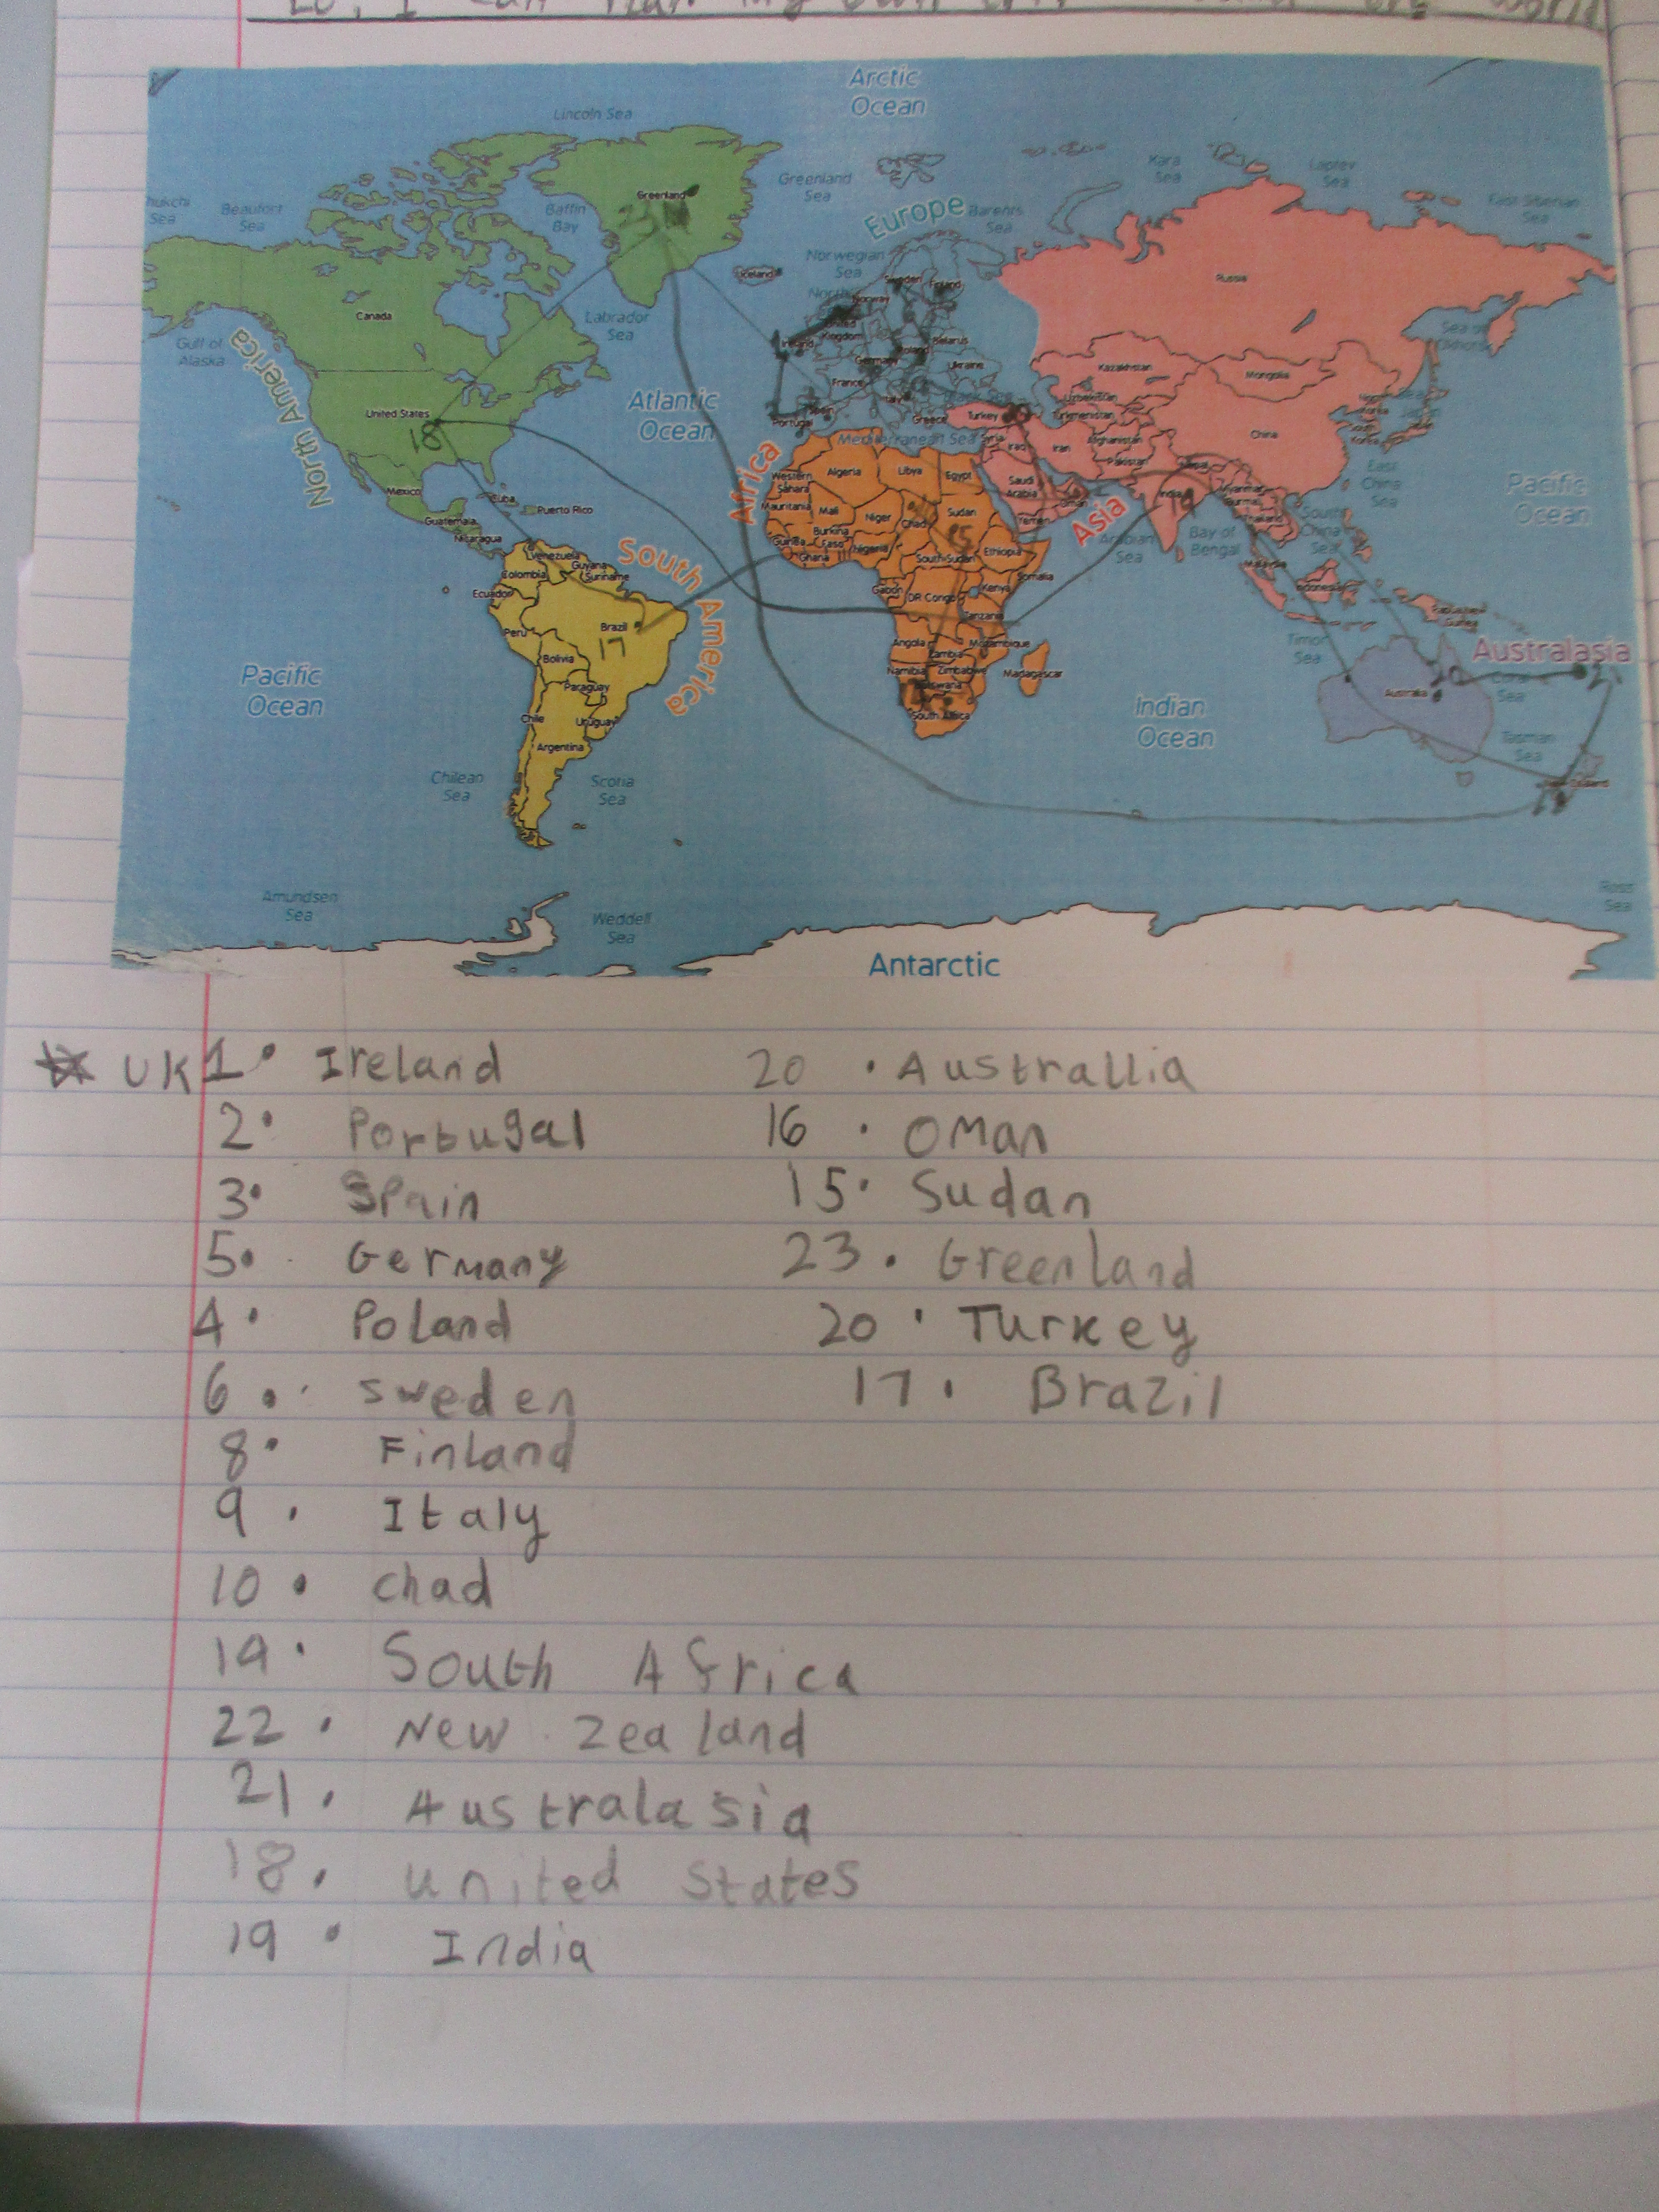 LO: I can plan my own trip around the world
Arctic
Ocean
Lincoln Sea
Greenland
Greenland
Sea
Kara
Sea
Laptev
Sea
East Siberian
Sea
Beaufort
Sea
Baffin
Bay
Europe
Barents
Sea
Norwegian
Sea
Iceland
Sweden
Finland
Norway
Russia
Canada
Labrador
Sea
Gulf of
Alaska
North America
United
Kingdom
Ireland
Poland
Belarus
Germany
Ukraine
France
Kazakhstan
Mongolia
United States
18
Atlantic
Ocean
Italy
Spain
Portugal
Greece
Turkey
Uzbekistan
Turkmenistan
China
Mediterranean Sea
Syria
Iraq
Iran
Afghanistan
Pakistan
Africa
Western
Sahara
Algeria
Libya
Egypt
Saudi
Arabia
Oman
East
China
Sea
Pacific
Ocean
Mexico
Cuba
Puerto Rico
Guatemala
Nicaragua
Mauritania
Mali
Niger
Chad
Sudan
15
Yemen
Asia
India
19
Myanmar
Burma
Thailand
Bay of
Bengal
South
China
Sea
Arabian
Sea
Burkina
Faso
Guinea
Ghana
Nigeria
South Sudan
Ethiopia
Somalia
Venezuela
Guyana
Suriname
Colombia
Ecuador
South America
Gabon
DR Congo
Kenya
Tanzania
Malaysia
Indonesia
Papua New
Guinea
Peru
Brazil
17
Bolivia
Paraguay
Angola
Zambia
Mozambique
Namibia
Zimbabwe
Botswana
Madagascar
South Africa
Timor
Sea
Australasia
Coral
Sea
20
Australia
Pacific
Ocean
Indian
Ocean
Tasman
Sea
Chile
Uruguay
Argentina
Chilean
Sea
Scotia
Sea
Amundsen
Sea
Weddell
Sea
Ross
Sea
Antarctic
UK 1• Ireland
2• Portugal
3• Spain
5• Germany
4• Poland
6• Sweden
8• Finland
9• Italy
10• Chad
19• South Africa
22• New Zealand
21• Australasia
18• united States
19• India
20 • Australlia
16 • Oman
15• Sudan
23• Greenland
20• Turkey
17• Brazil